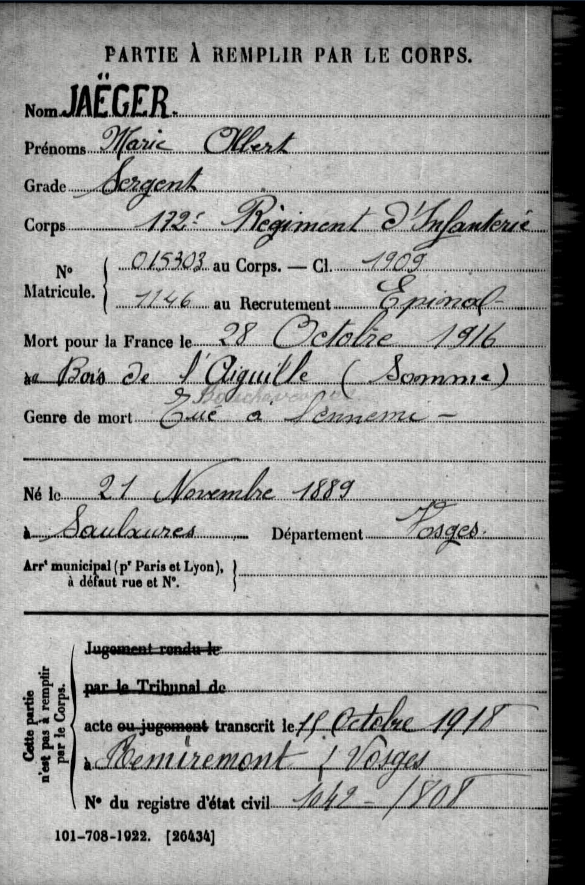 PARTIE À REMPLIR PAR LE CORPS.
Nom JAËGER.
Prénoms Marie Albert
Grade Sergent
Corps 172e Régiment d'Infanterie
N° Matricule. 015303 au Corps. — Cl. 1909
1146 au Recrutement Epinal
Mort pour la France le 28 Octobre 1916
à Bois de l'Aiguille (Somme)
Bouchavesnes
Genre de mort Tué à l'ennemi —
Né le 21 Novembre 1889
à Saulxures Département Vosges.
Arrt municipal (pr Paris et Lyon),
à défaut rue et N°.
Cette partie n'est pas à remplir par le Corps.
Jugement rendu le
par le Tribunal de
acte ou jugement transcrit le 15 Octobre 1918
à Remiremont / Vosges
N° du registre d'état civil 1042 - / 808
101-708-1922. [26434]